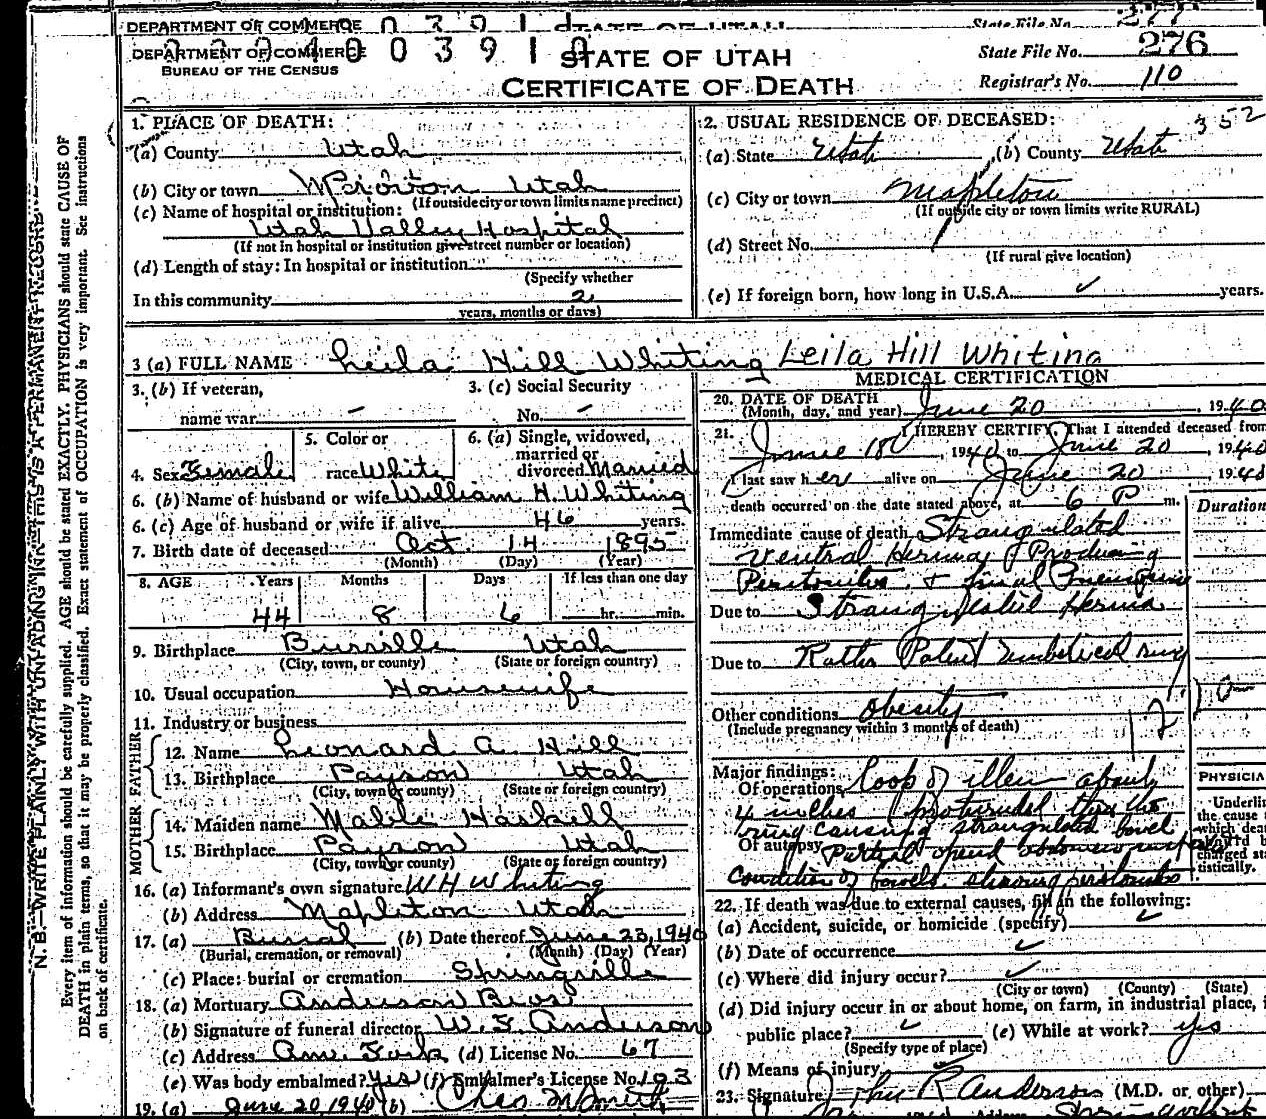 DEPARTMENT OF COMMERCE STATE OF UTAH State File No. 277
DEPARTMENT OF COMMERCE 00391 STATE OF UTAH State File No. 276
BUREAU OF THE CENSUS CERTIFICATE OF DEATH Registrar's No. 110
1. PLACE OF DEATH:
(a) County Utah
(b) City or town Utah
(If outside city or town limits name precinct)
(c) Name of hospital or institution:
Utah Valley Hospital
(If not in hospital or institution give street number or location)
(d) Length of stay: In hospital or institution
(Specify whether
In this community 2
years, months or days)
2. USUAL RESIDENCE OF DECEASED: 352
(a) State Utah (b) County Utah
(c) City or town Mapleton
(If outside city or town limits write RURAL)
(d) Street No.
(If rural give location)
(e) If foreign born, how long in U.S.A. ✓ years.
3 (a) FULL NAME Leila Hill Whiting Leila Hill Whiting
3. (b) If veteran,
name war –
3. (c) Social Security
No. –
4. Sex Female
5. Color or
race White
6. (a) Single, widowed,
married or
divorced Married
6. (b) Name of husband or wife William H. Whiting
6. (c) Age of husband or wife if alive 46 years.
7. Birth date of deceased Oct. 14 1895
(Month) (Day) (Year)
8. AGE Years Months Days If less than one day
44 8 6 hr. min.
9. Birthplace Utah
(City, town, or county) (State or foreign country)
10. Usual occupation Housewife
11. Industry or business
FATHER
12. Name Leonard A. Hill
13. Birthplace Payson Utah
(City, town or county) (State or foreign country)
MOTHER
14. Maiden name Haskell
15. Birthplace Payson Utah
(City, town or county) (State or foreign country)
16. (a) Informant's own signature W H Whiting
(b) Address Mapleton Utah
17. (a) Burial (b) Date thereof June 23, 1940
(Burial, cremation, or removal) (Month) (Day) (Year)
(c) Place: burial or cremation Springville
18. (a) Mortuary Anderson Bros
(b) Signature of funeral director Anderson
(c) Address Am. Fork (d) License No. 67
(e) Was body embalmed? Yes (f) Embalmer's License No. 193
19. (a) June 20 1940 (b) Chas M Smith
MEDICAL CERTIFICATION
20. DATE OF DEATH
(Month, day, and year) June 20, 1940
21. I HEREBY CERTIFY, That I attended deceased from
June 18, 1940 to June 20, 1940
I last saw her alive on June 20 1940
death occurred on the date stated above, at 6 P m.
Duration
Immediate cause of death Strangulated
Ventral Hernia Producing
Peritonitis &
Due to Hernia
Due to Rather Patent Umbilical ring
Other conditions Obesity
(Include pregnancy within 3 months of death)
Major findings:
Of operations Loop of about
4 inches protruded thru the
ring causing strangulated bowel
Of autopsy Partial
Condition of bowels showing peritonitis
PHYSICIA
Underlin
the cause
which dea
charged sta
tistically.
22. If death was due to external causes, fill in the following:
(a) Accident, suicide, or homicide (specify) ✓
(b) Date of occurrence ✓
(c) Where did injury occur? ✓
(City or town) (County) (State)
(d) Did injury occur in or about home, on farm, in industrial place, i
public place? ✓ (e) While at work? yes
(Specify type of place)
(f) Means of injury
23. Signature Anderson (M.D. or other)
N. B.—WRITE PLAINLY WITH UNFADING INK THIS IS A PERMANENT RECORD
Every item of information should be carefully supplied. AGE should be stated EXACTLY. PHYSICIANS should state CAUSE OF
DEATH in plain terms, so that it may be properly classified. Exact statement of OCCUPATION is very important. See instructions
on back of certificate.